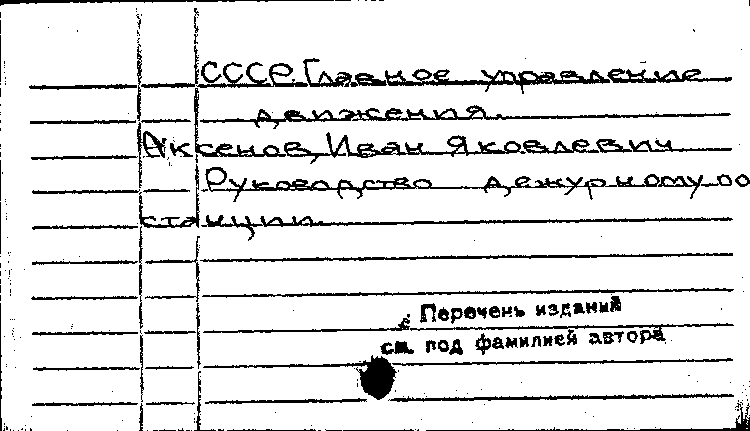 СССР. Главное управление
движения.
Аксенов, Иван Яковлевич
Руководство дежурному по
станции.
Перечень изданий
см. под фамилией автора